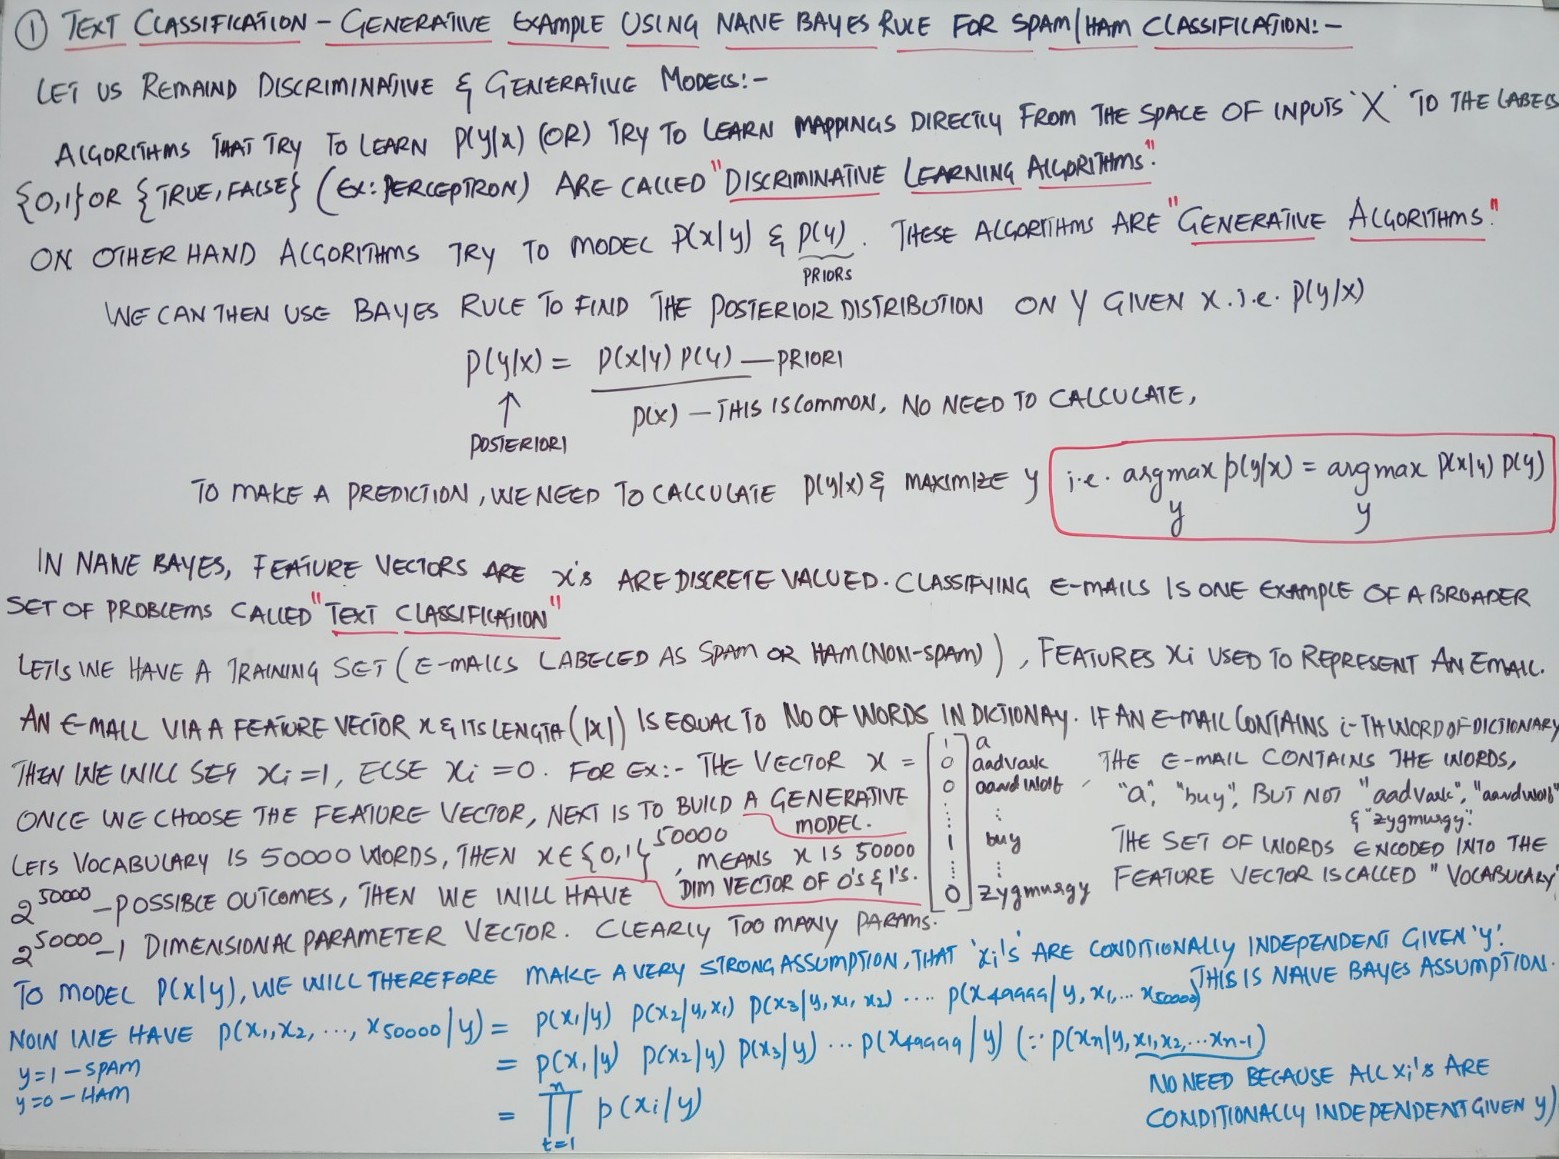 ① TEXT CLASSIFICATION - GENERATIVE EXAMPLE USING NAIVE BAYES RULE FOR SPAM/HAM CLASSIFICATION:-
LET US REMAIND DISCRIMINATIVE & GENERATIVE MODELS:-
ALGORITHMS THAT TRY TO LEARN P(y|x) (OR) TRY TO LEARN MAPPINGS DIRECTLY FROM THE SPACE OF INPUTS 'X' TO THE LABELS
{0,1} OR {TRUE, FALSE} (EX: PERCEPTRON) ARE CALLED "DISCRIMINATIVE LEARNING ALGORITHMS".
ON OTHER HAND ALGORITHMS TRY TO MODEL P(x|y) & P(y). THESE ALGORTIHMS ARE "GENERATIVE ALGORITHMS."
PRIORS
WE CAN THEN USE BAYES RULE TO FIND THE POSTERIOR DISTRIBUTION ON Y GIVEN X. i.e. P(y|x)
P(y|x) = P(x|y) P(y) — PRIORI
P(x) — THIS IS COMMON, NO NEED TO CALCULATE,
↑
POSTERIORI
TO MAKE A PREDICTION, WE NEED TO CALCULATE P(y|x) & MAXIMIZE y i.e. argmax p(y|x) = argmax P(x|y) P(y)
y y
IN NAIVE BAYES, FEATURE VECTORS ARE x's ARE DISCRETE VALUED. CLASSIFYING E-MAILS IS ONE EXAMPLE OF A BROADER
SET OF PROBLEMS CALLED "TEXT CLASSIFICATION"
LETS WE HAVE A TRAINING SET (E-MAILS LABELED AS SPAM OR HAM (NON-SPAM)), FEATURES xi USED TO REPRESENT AN EMAIL.
AN E-MAIL VIA A FEATURE VECTOR x & ITS LENGTH (|x|) IS EQUAL TO NO OF WORDS IN DICTIONAY. IF AN E-MAIL CONTAINS i-TH WORD OF DICTIONARY
THEN WE WILL SET xi=1, ELSE xi=0. FOR EX:- THE VECTOR x =
1 a
0 aadvark
0 aandwolf
⋮ ⋮
1 buy
⋮ ⋮
0 zygmurgy
THE E-MAIL CONTAINS THE WORDS,
"a", "buy", BUT NOT "aadvark", "aandwolf"
& "zygmurgy".
THE SET OF WORDS ENCODED INTO THE
FEATURE VECTOR IS CALLED "VOCABULARY"
ONCE WE CHOOSE THE FEATURE VECTOR, NEXT IS TO BUILD A GENERATIVE
MODEL.
LETS VOCABULARY IS 50000 WORDS, THEN x∈{0,1}^50000, MEANS x IS 50000
DIM VECTOR OF 0'S & 1'S.
2^50000 - POSSIBLE OUTCOMES, THEN WE WILL HAVE
2^50000-1 DIMENSIONAL PARAMETER VECTOR. CLEARLY TOO MANY PARAMS.
TO MODEL P(x|y), WE WILL THEREFORE MAKE A VERY STRONG ASSUMPTION, THAT 'xi's' ARE CONDITIONALLY INDEPENDENT GIVEN 'y'.
THIS IS NAIVE BAYES ASSUMPTION.
NOW WE HAVE P(x1, x2, ..., x50000|y) = P(x1|y) P(x2|y,x1) P(x3|y, x1, x2) .... P(x49999|y, x1, ... x50000)
= P(x1|y) P(x2|y) P(x3|y) ... P(x49999|y) (∵ P(xn|y, x1, x2, ... xn-1)
y=1 - SPAM
y=0 - HAM
NO NEED BECAUSE ALL xi's ARE
CONDITIONALLY INDEPENDENT GIVEN y)
n
= ∏ p(xi|y)
t=1